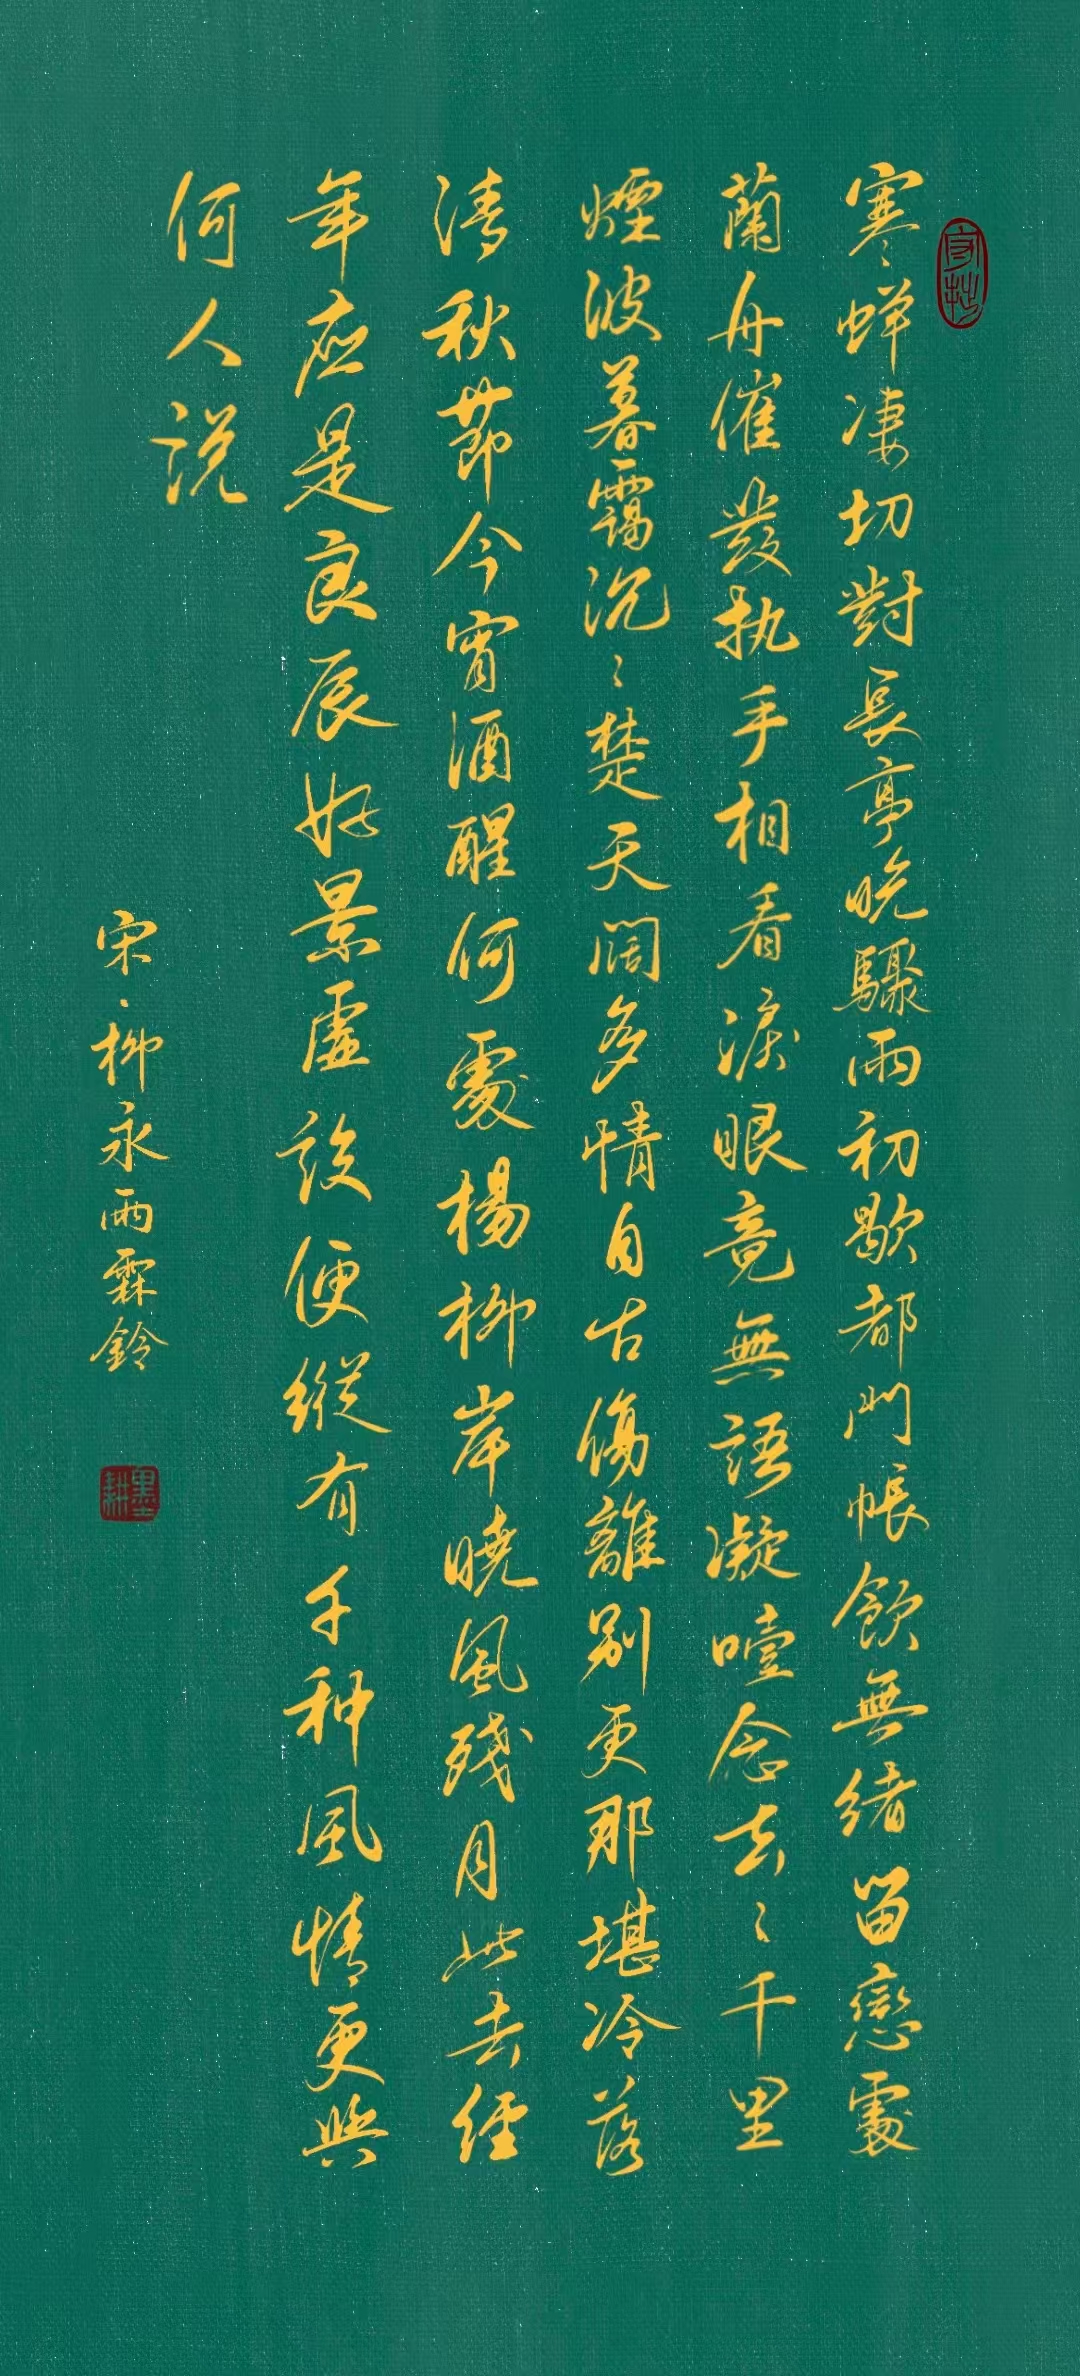 寒蝉凄切對長亭晚驟雨初歇都門帳飲無緒留戀處
蘭舟催發执手相看淚眼竟無語凝噎念去〻千里
煙波暮靄沉〻楚天闊多情自古傷離别更那堪冷落
清秋節今宵酒醒何處楊柳岸曉風殘月此去经
年应是良辰好景虛设便縱有千种風情更與
何人说
宋·柳永雨霖鈴
守拙
墨耕